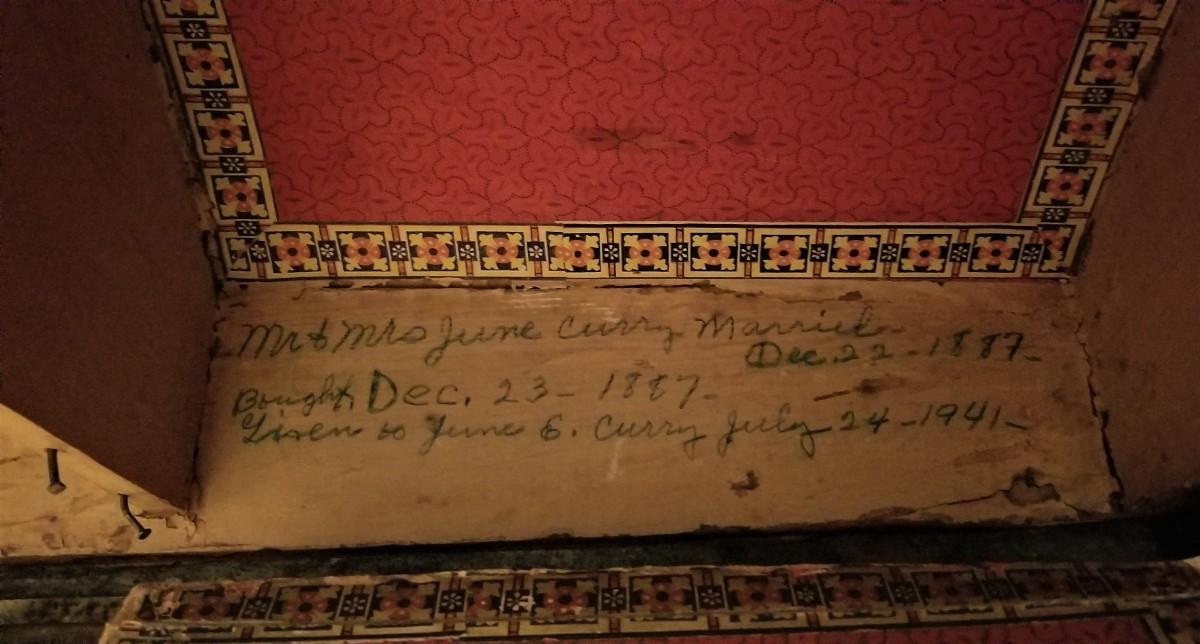 Mr & Mrs June Curry Married
Dec. 22 - 1887-
Bought, Dec. 23 - 1887-
Given to June E. Curry July 24 - 1941-